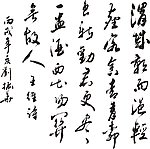 渭城朝雨浥輕
塵客舍青青柳
色新勸君更盡
一盃酒西出陽關
無故人 王維詩
丙戌年夏劉